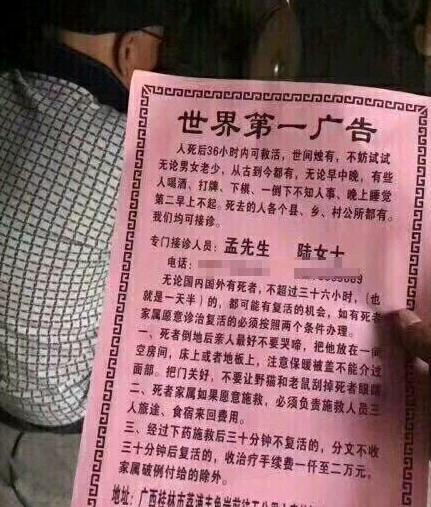 世界第一广告
人死后36小时内可救活，世间独有，不妨试试
无论男女老少，从古到今都有，无论早中晚，有些
人喝酒、打牌、下棋、一倒下不知人事、晚上睡觉
第二早上不起。死去的人各个县、乡、村公所都有。
我们均可接诊。
专门接诊人员：孟先生 陆女士
电话：
无论国内国外有死者，不超过三十六小时，（也
就是一天半）的，都可能有复活的机会，如有死者
家属愿意诊治复活的必须按照两个条件办理。
一、死者倒地后亲人最好不要哭啼，把他放在一间
空房间，床上或者地板上，注意保暖被盖不能介过
面部。把门关好，不要让野猫和老鼠刮掉死者眼睛
二、死者家属如果愿意施救，必须负责施救人员三
人旅途、食宿来回费用。
三、经过下药施救后三十分钟不复活的，分文不收
三十分钟后复活的，收治疗手续费一仟至二万元。
家属破例付给的除外。
地址：广西桂林市荔浦